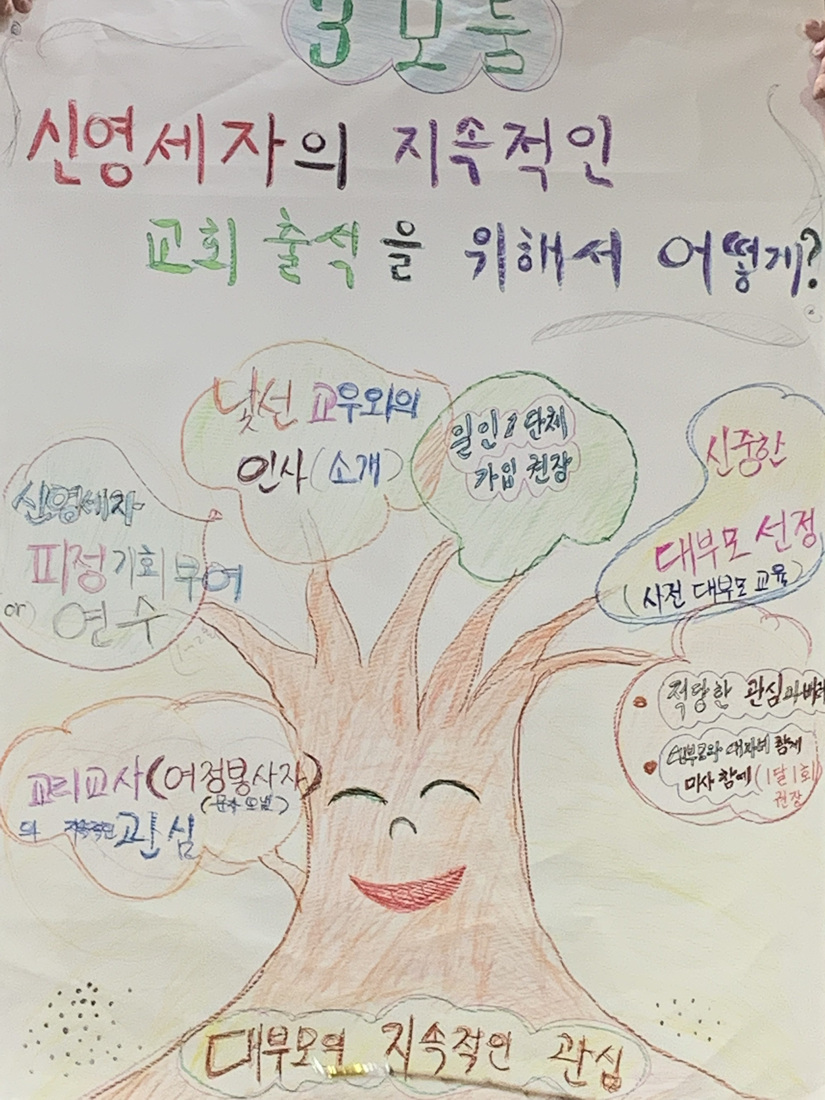 3모둠
신영세자의 지속적인
교회 출석을 위해서 어떻게?
낯선 교우와의
인사(소개)
일인 1 단체
가입 권장
신중한
대부모 선정
(사전 대부모 교육)
신영세자
피정 기회 부여
or) 연수
적당한 관심과 배려
대부모와 대자녀 함께
미사 참예 (1달 1회)
권장
교리교사(여정봉사자)
의 지속적인 관심
대부모의 지속적인 관심